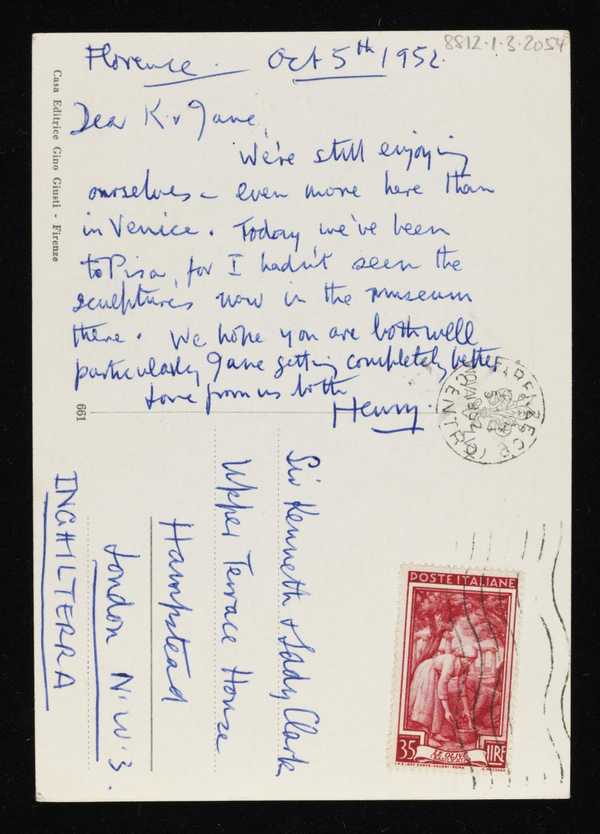 8812.1.3.2054
Florence. Oct 5th 1952.
Dear K. & Jane,
We're still enjoying
ourselves – even more here than
in Venice. Today we've been
to Pisa, for I hadn't seen the
sculptures now in the museum
there. We hope you are both well
particularly Jane getting completely better
Love from us both
Henry.
Casa Editrice Gino Giusti - Firenze
661
Sir Kenneth & Lady Clark
Upper Terrace House
Hampstead
London N.W.3.
INGHILTERRA
FIRENZE
CENTRO
POSTE ITALIANE
35 LIRE